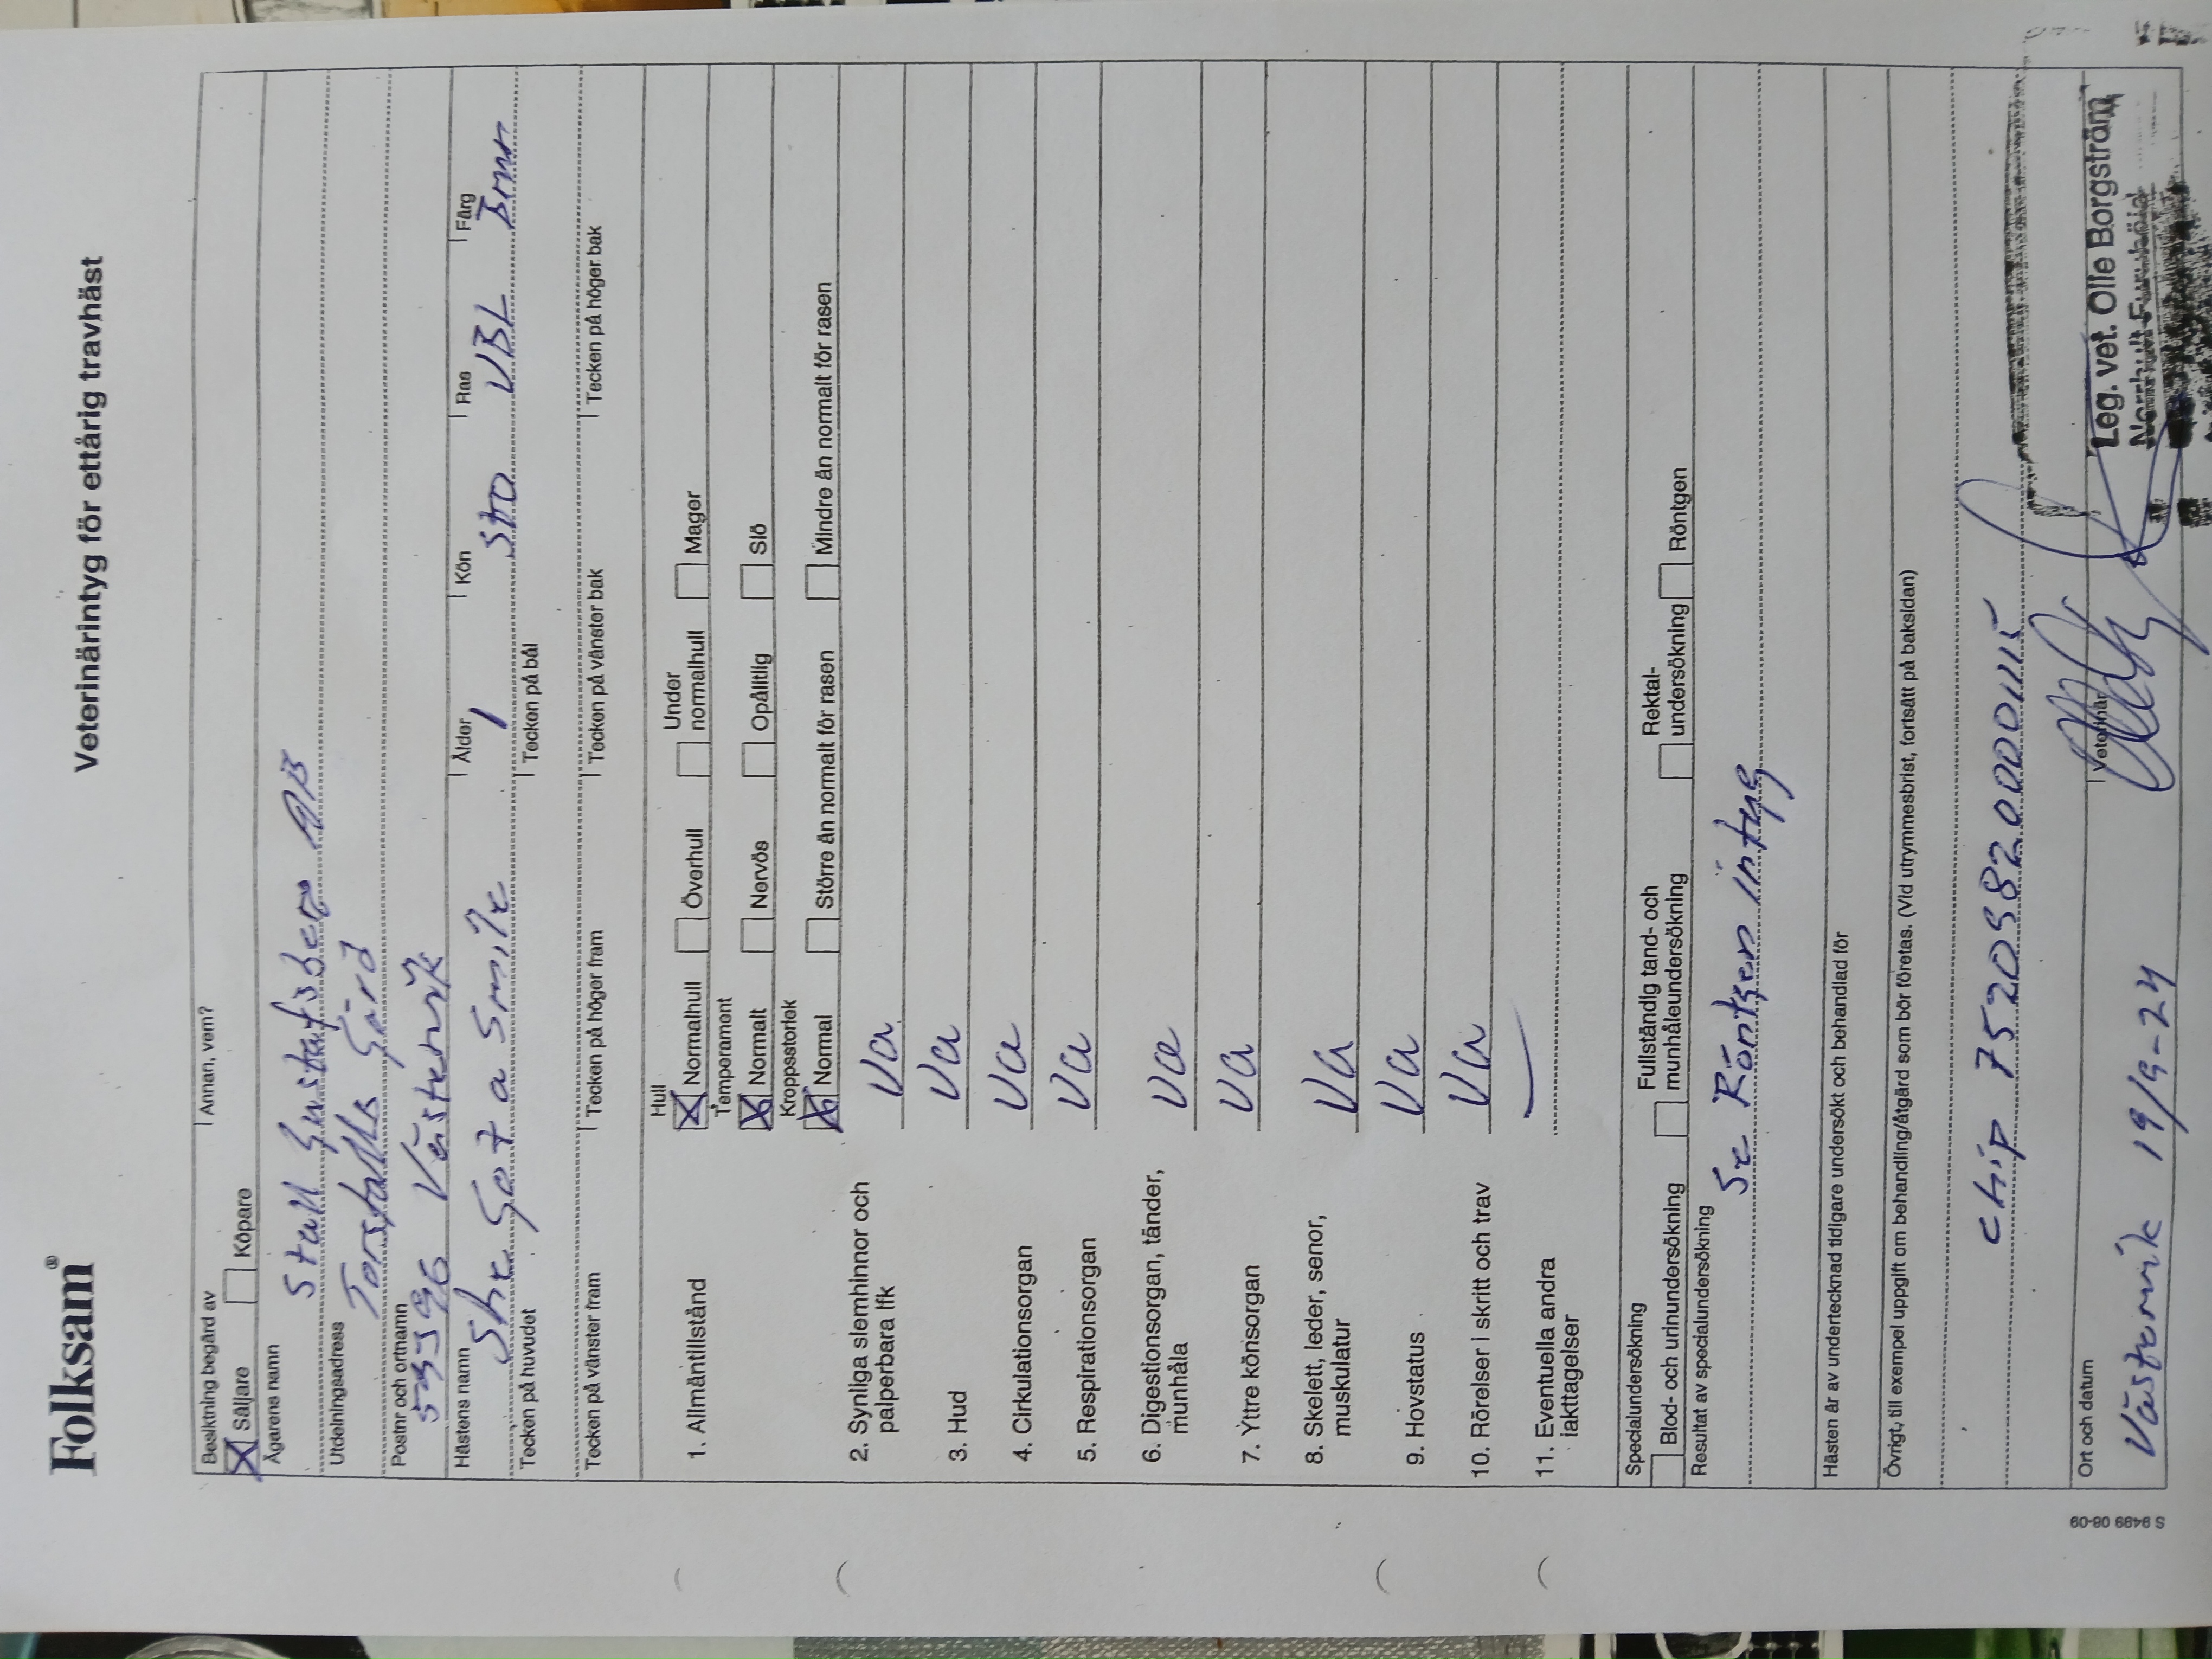 Folksam®
Veterinärintyg för ettårig travhäst
Besiktning begärd av
Säljare Köpare Annan, vem?
Ägarens namn
Stall Gustafsberg AB
Utdelningsadress
Torstalls Gård
Postnr och ortnamn
Västervik
Hästens namn Ålder Kön Ras Färg
She Got a Smile 1 Sto VBL Brun
Tecken på huvudet Tecken på bål
Tecken på vänster fram Tecken på höger fram Tecken på vänster bak Tecken på höger bak
1. Allmäntillstånd
Hull
Normalhull Överhull Under normalhull Mager
Temperament
Normalt Nervös Opålitlig Slö
Kroppsstorlek
Normal Större än normalt för rasen Mindre än normalt för rasen
2. Synliga slemhinnor och
palperbara lfk Ua
3. Hud Ua
4. Cirkulationsorgan Ua
5. Respirationsorgan Ua
6. Digestionsorgan, tänder,
munhåla Ua
7. Yttre könisorgan Ua
8. Skelett, leder, senor,
muskulatur Ua
9. Hovstatus Ua
10. Rörelser i skritt och trav Ua
11. Eventuella andra
iakttagelser
Specialundersökning
Blod- och urinundersökning Fullständig tand- och munhåleundersökning Rektal- undersökning Röntgen
Resultat av specialundersökning
Se Röntgen intyg
Hästen är av undertecknad tidigare undersökt och behandlad för
Övrigt, till exempel uppgift om behandling/åtgärd som bör företas. (Vid utrymmesbrist, fortsätt på baksidan)
chip
Ort och datum Veterinär
Västervik 19/9-24
Leg. vet. Olle Borgström
S 9499 08-09